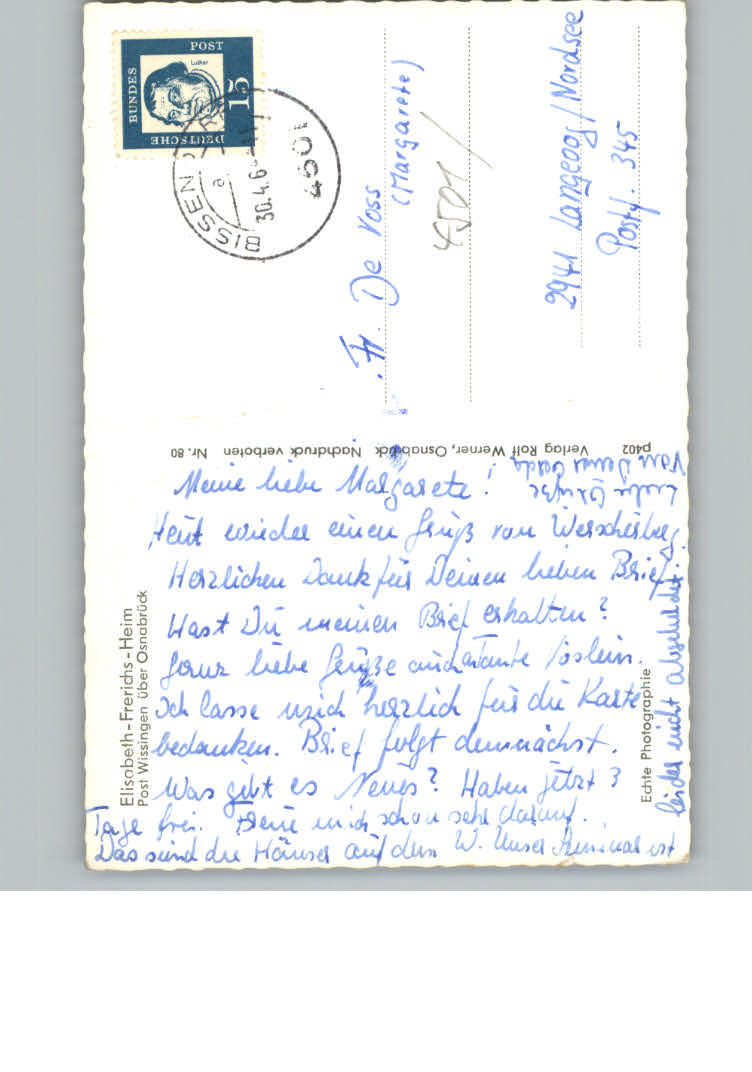 DEUTSCHE
BUNDES
POST
Luther
15
BISSEN
a
30.4.6
4501
Fr. De Voss
(Margarete)
4501/
2941 Langeoog/Nordsee
Postf. 345
p402 Verlag Rolf Werner, Osnabrück Nachdruck verboten Nr. 80
Elisabeth-Frerichs-Heim
Post Wissingen über Osnabrück
Echte Photographie
Meine liebe Margarete!
Heut wieder einen Gruß von Werscherberg.
Herzlichen Dank für Deinen lieben Brief.
Hast Du meinen Brief erhalten?
Ganz liebe Grüße auch an Tante
Ich lasse mich herzlich für die Karte
bedanken. Brief folgt demnächst.
Was gibt es Neues? Haben jetzt 3
Tage frei. Freue mich schon sehr darauf.
Das sind die Häuser auf dem W. Unser Seminar ist
leider nicht abgebildet.
Liebe Grüße
von Deiner